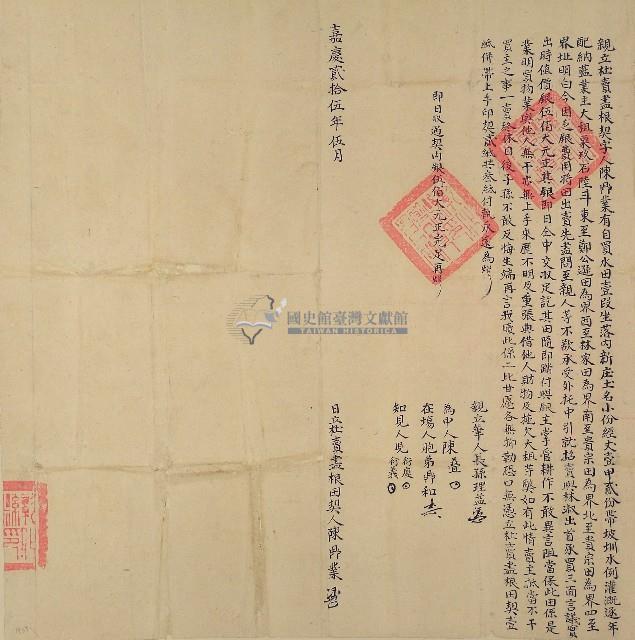 親立杜賣盡根契字人陳興業有自買水田壹段坐落內新庄土名小份經丈壹甲貳份帶坡圳水倒灌溉逐年
配納藍業主大租粟玖石陸斗東至鄭公遜田為界西至林家田為界南至貴宗田為界北至貴宗田為界四至
界址明白今因乏銀費用將田出賣先盡問至親人等不欲承受外托中引就招賣與林淑出首承買三面言議
出時值價銀伍佰大元正其銀即日仝中交收足訖其田隨即踏付與銀主掌管耕作不敢異言阻當保此田係是
業明買物業與他人無干亦無上手來歷不明及重張典借他人財物及拖欠大租等弊如有此情賣主抵當不干
買主之事一賣終休日後子孫不敢反悔生端再言找贖此係二比甘愿各無抑勒恐口無憑立杜賣盡根田契壹
紙併帶上手印契貳紙共叁紙付執永遠為炤
即日收過契內銀伍佰大元正完足再炤
親立筆人長孫理益
為中人陳
在場人胞弟興和
知見人
嘉慶貳拾伍年伍月 日立杜賣盡根田契人陳興業
國史館臺灣文獻館
TAIWAN HISTORICA